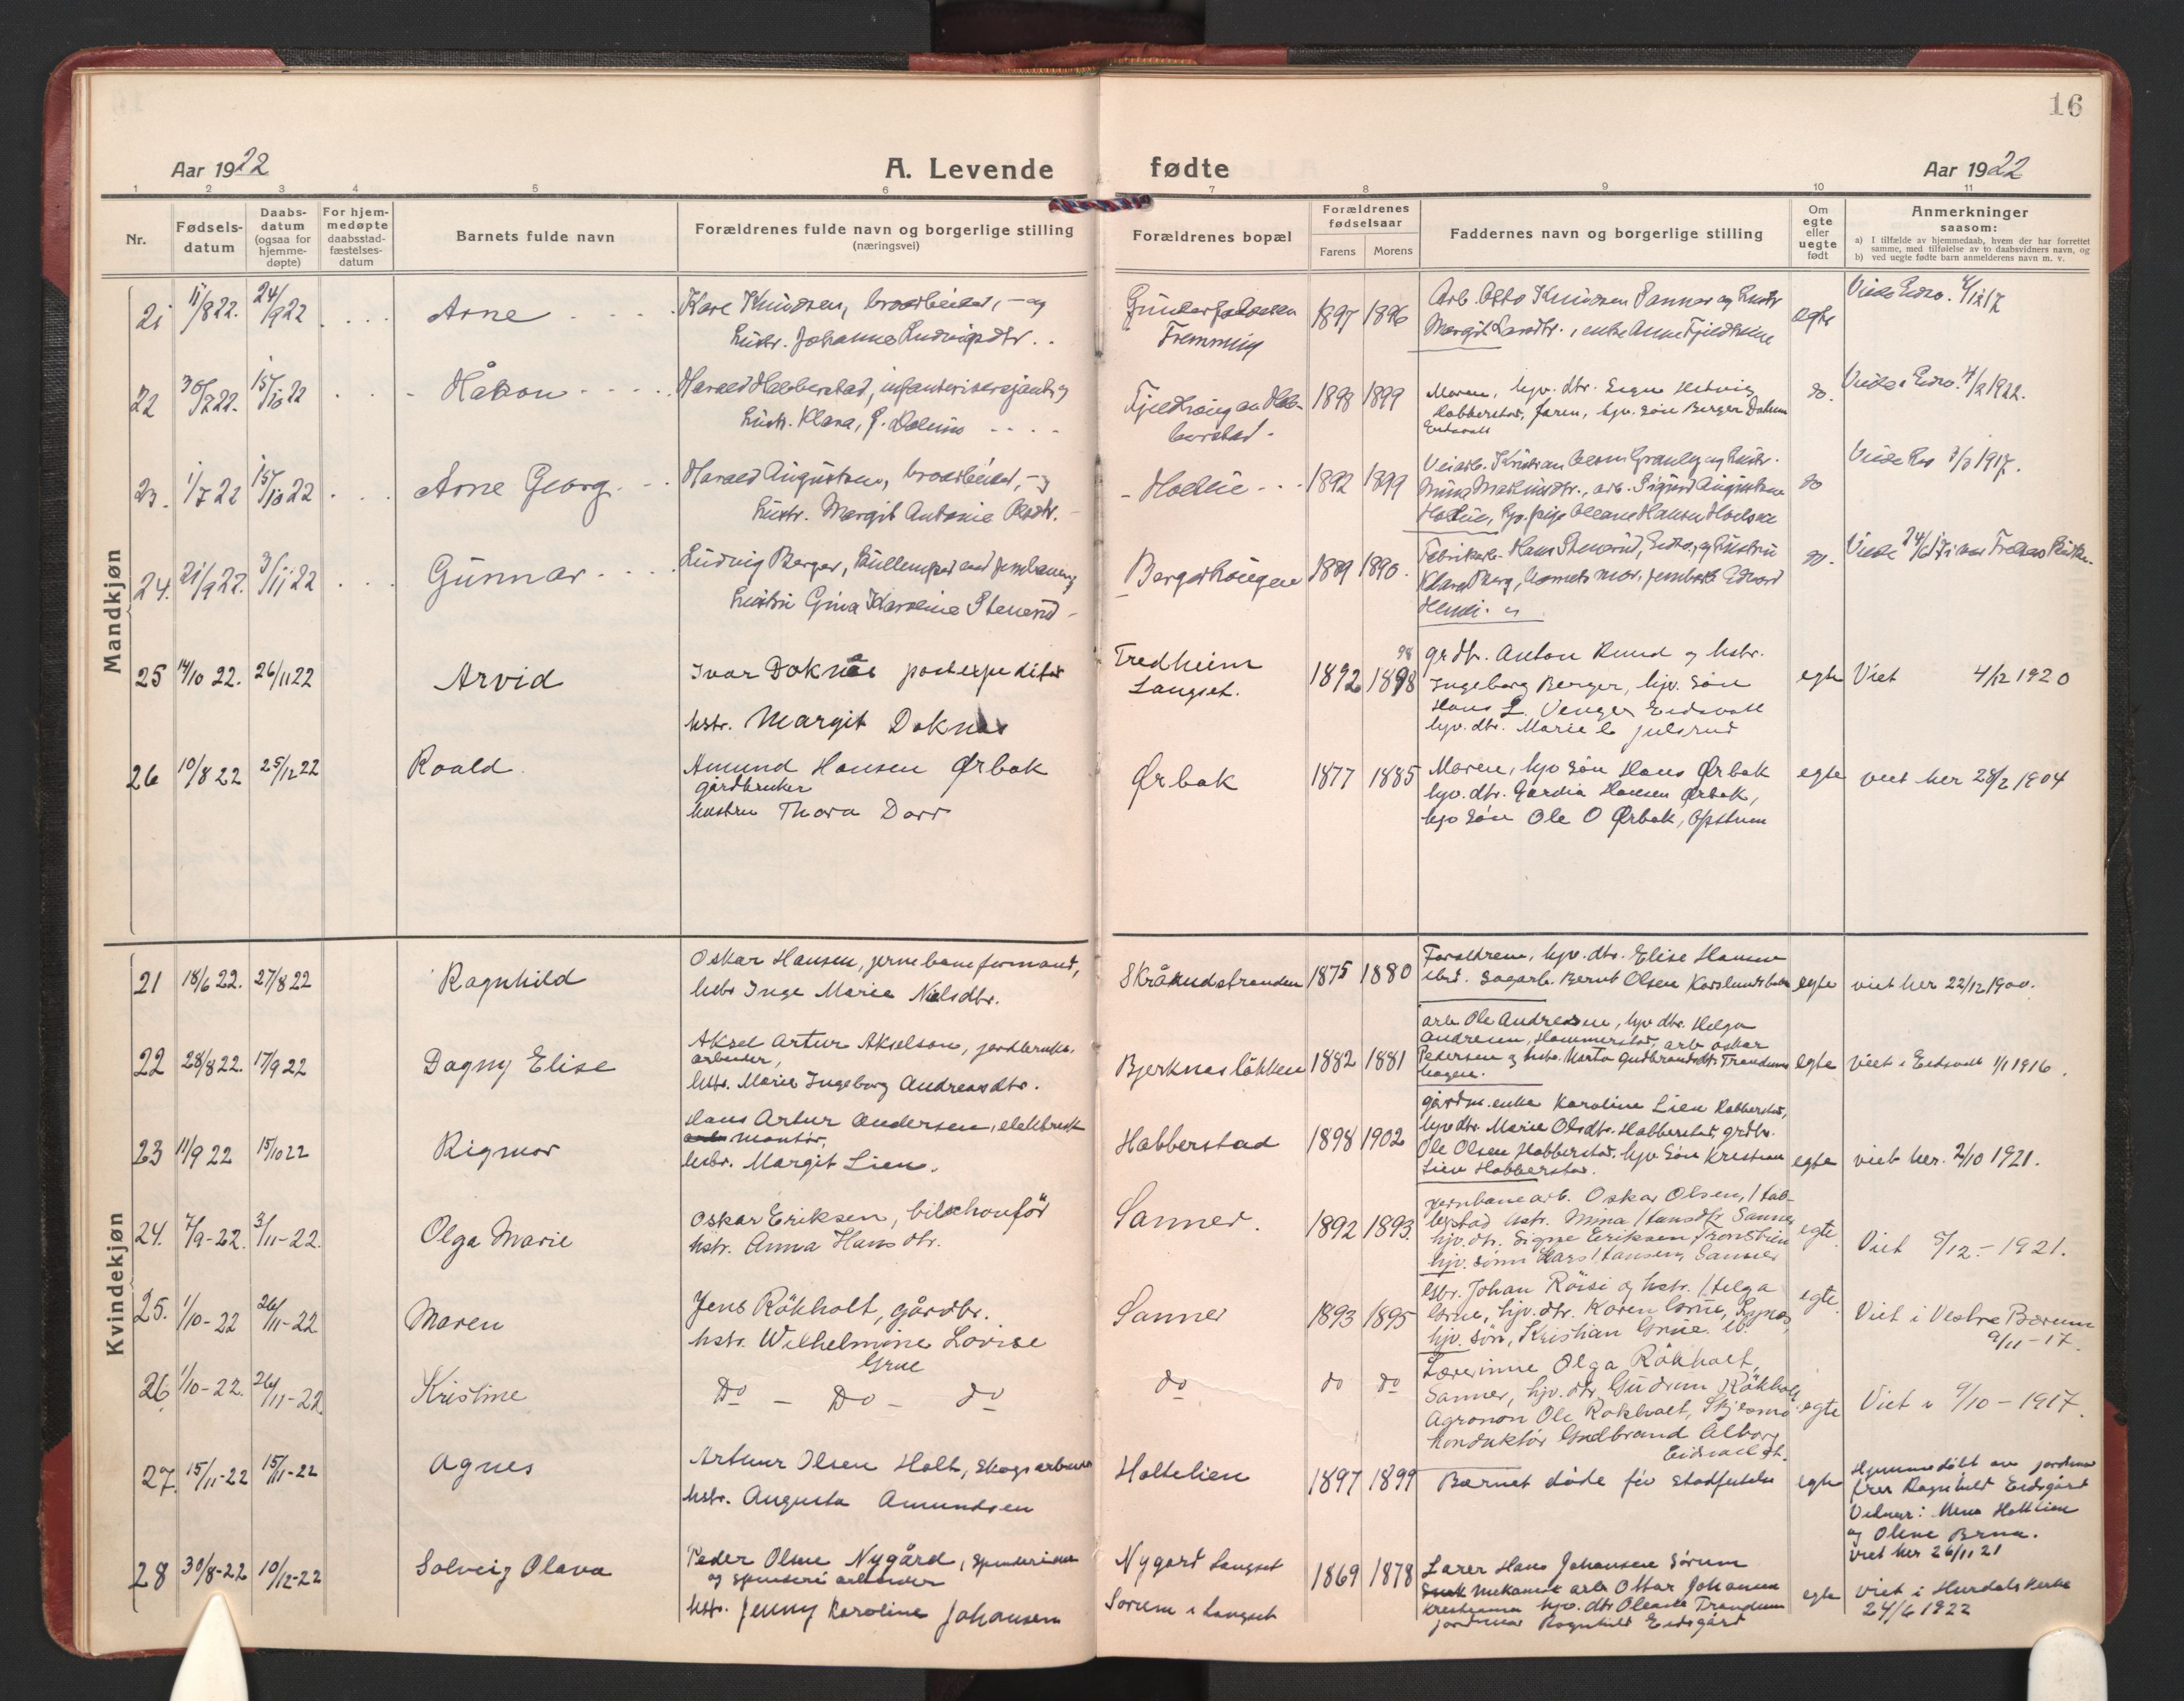 16
Aar 1922
A. Levende
fødte
Aar 1922
1 2 3 4 5 6 7 8 9 10 11
Nr.
Fødsels-
datum
Daabs-
datum
(ogsaa for
hjemme-
døpte)
For hjem-
medøpte
daabsstad-
fæstelses-
datum
Barnets fulde navn
Forældrenes fulde navn og borgerlige stilling
(næringsvei)
Forældrenes bopæl
Forældrenes
fødselsaar
Farens
Morens
Faddernes navn og borgerlige stilling
Om
egte
eller
uegte
født
Anmerkninger
saasom:
a) I tilfælde av hjemmedaab, hvem der har forrettet
samme, med tilføielse av to daabsvidners navn, og
b) ved uegte fødte barn anmelderens navn m. v.
Mandkjøn
21 11/8 22. 24/9 22 Arne
Kare Knudsen, og
hustr. Johanne Ludvigsdtr.
1897 1896
Arb. Otto Knudsen Sanner og hustr
Margit
egte
22 30/7 22. 15/10 22 Håkon
Harald Habberstad, infanterisersjant og
hustr. Klara, f. Dolmis
1898 1899
Moren, hjv. dtr. Signe
Habberstad, faren, hjv. søn Berger
do.
1922.
23. 1/7 22 15/10 22 Arne Georg
Harald Augustsen, og
hustr. Margit Antonie
1892 1899
do
1917.
24. 21/9 22. 3/11 22 Gunnar
Ludvig Berger, ved jernbanen og
hustru Gina Karoline Stenerud
Bergerhaugen
1889 1890.
Hans Stenerud, og hustru
Klara Berg, barnets mor, Edvard
do.
25 14/10 22. 26/11 22 Arvid
Ivar Doknæs postexpeditør
hstr. Margit Doknes
Fredheim
Langset.
1892 98 1898
grdbr. Anton Ruud og hstr.
Ingeborg Berger, hjv. søn
Hans L. Venger Eidsvoll
hjv. dtr. Marie C Julsrud
egte
Viet 4/12 1920
26 10/8 22 25/12 22 Roald
Amund Hansen Ørbak
gårdbruker
hustru Thora Dorr
Ørbak
1877 1885
Moren, hjv søn Hans Ørbak
hjv. dtr. Gardia Hansen Ørbak,
hjv søn Ole O Ørbak,
egte
viet her 28/2 1904
Kvindekjøn
21 18/6 22. 27/8 22 Ragnhild
Oskar Hansen, jernbaneformand,
hstr Inge Marie Nilsdtr.
Skråkudstranden
1875 1880
Forældrene, hjv. dtr. Elise Hansen
ibid. Sagarb. Bernt Olsen
egte
viet her 22/12 1900.
22 28/8 22. 17/9 22 Dagny Elise
Aksel Artur Akselson, jordbruks-
arbeider,
hstr. Marie Ingeborg Andreasdtr.
Bjerknesløkken
1882 1881
arb Ole Andresen, hjv dtr. Helga
Andresen, Hammerstad, arb Oskar
Pedersen og hstr. Marta Gudbrandsdtr. Trandum
hagen.
egte
viet i Eidsvoll 1/1 1916.
23 11/9 22 15/10 22 Rigmor
Hans Artur Andersen, elektrisk
montør,
hstr. Margit Lien.
Habberstad
1898 1902
gårdm. enke Karoline Lien Habberstad,
hjv dtr. Marie Olsdtr. Habberstad, grdbr.
Ole Olsen Habberstad, hjv. søn Kristian
Lien Habberstad.
egte
viet her. 2/10 1921.
24. 7/9-22. 3/11-22. Olga Marie
Oskar Eriksen, bilschouför
hstr. Anna Hansdtr.
Sanner.
1892 1893.
jernbanearb. Oskar Olsen, Hab-
berstad hstr. Mina Hansdtr Sanner
hjv. dtr. Signe Eriksen
hjv. sønn Lars Hansen, Sanner
egte
Viet 5/12.- 1921.
25. 1/10-22 26/11-22 Maren
Jens Rökholt, gårdbr.
hstr. Wilhelmine Lovise
Grue
Sanner
1893 1895
gbr. Johan Röisi og hstr. Helga
Grue, hjv. dtr. Karen Grue,
hjv. søn, Kristian Grue. ib.
egte.
Viet i Vestre Bærum
9/11-17.
26. 1/10-22. 26/11-22. Kristine
Do - Do - do
do
do do
Lærerinne Olga Rökholt,
Sanner, hjv. dtr. Gudrun Rökholt,
Agronom Ole Rokholt,
konduktör Gudbrand Alborg
Eidsvoll st.
egte
Viet 9/10 - 1917.
27. 15/11-22 15/11-22 Agnes
Arthur Olsen Holt, skogsarbeider
hstr. Augusta Amundsen
Holtelien
1897 1899
Barnet døde før stadfestelse
egte
Hjemmedøbt av jordmor
frøken Ragnhild Eidsgård
Vidner:
og Oline
viet her 26/11 21
28 30/8-22 10/12-22 Solveig Olava
Peder Olsen Nygård,
arbeider
hstr. Jenny Karoline Johansen
Nygard Langset
Sørum i Langset
1869 1878
Lærer Hans Johansen Sørum
mekanisk arb Ottar Johansen
Kristiania hjv. dtr Trandum
jordmor Ragnhild Eidsgård
egte
viet i Hurdals kirke
24/6 1922